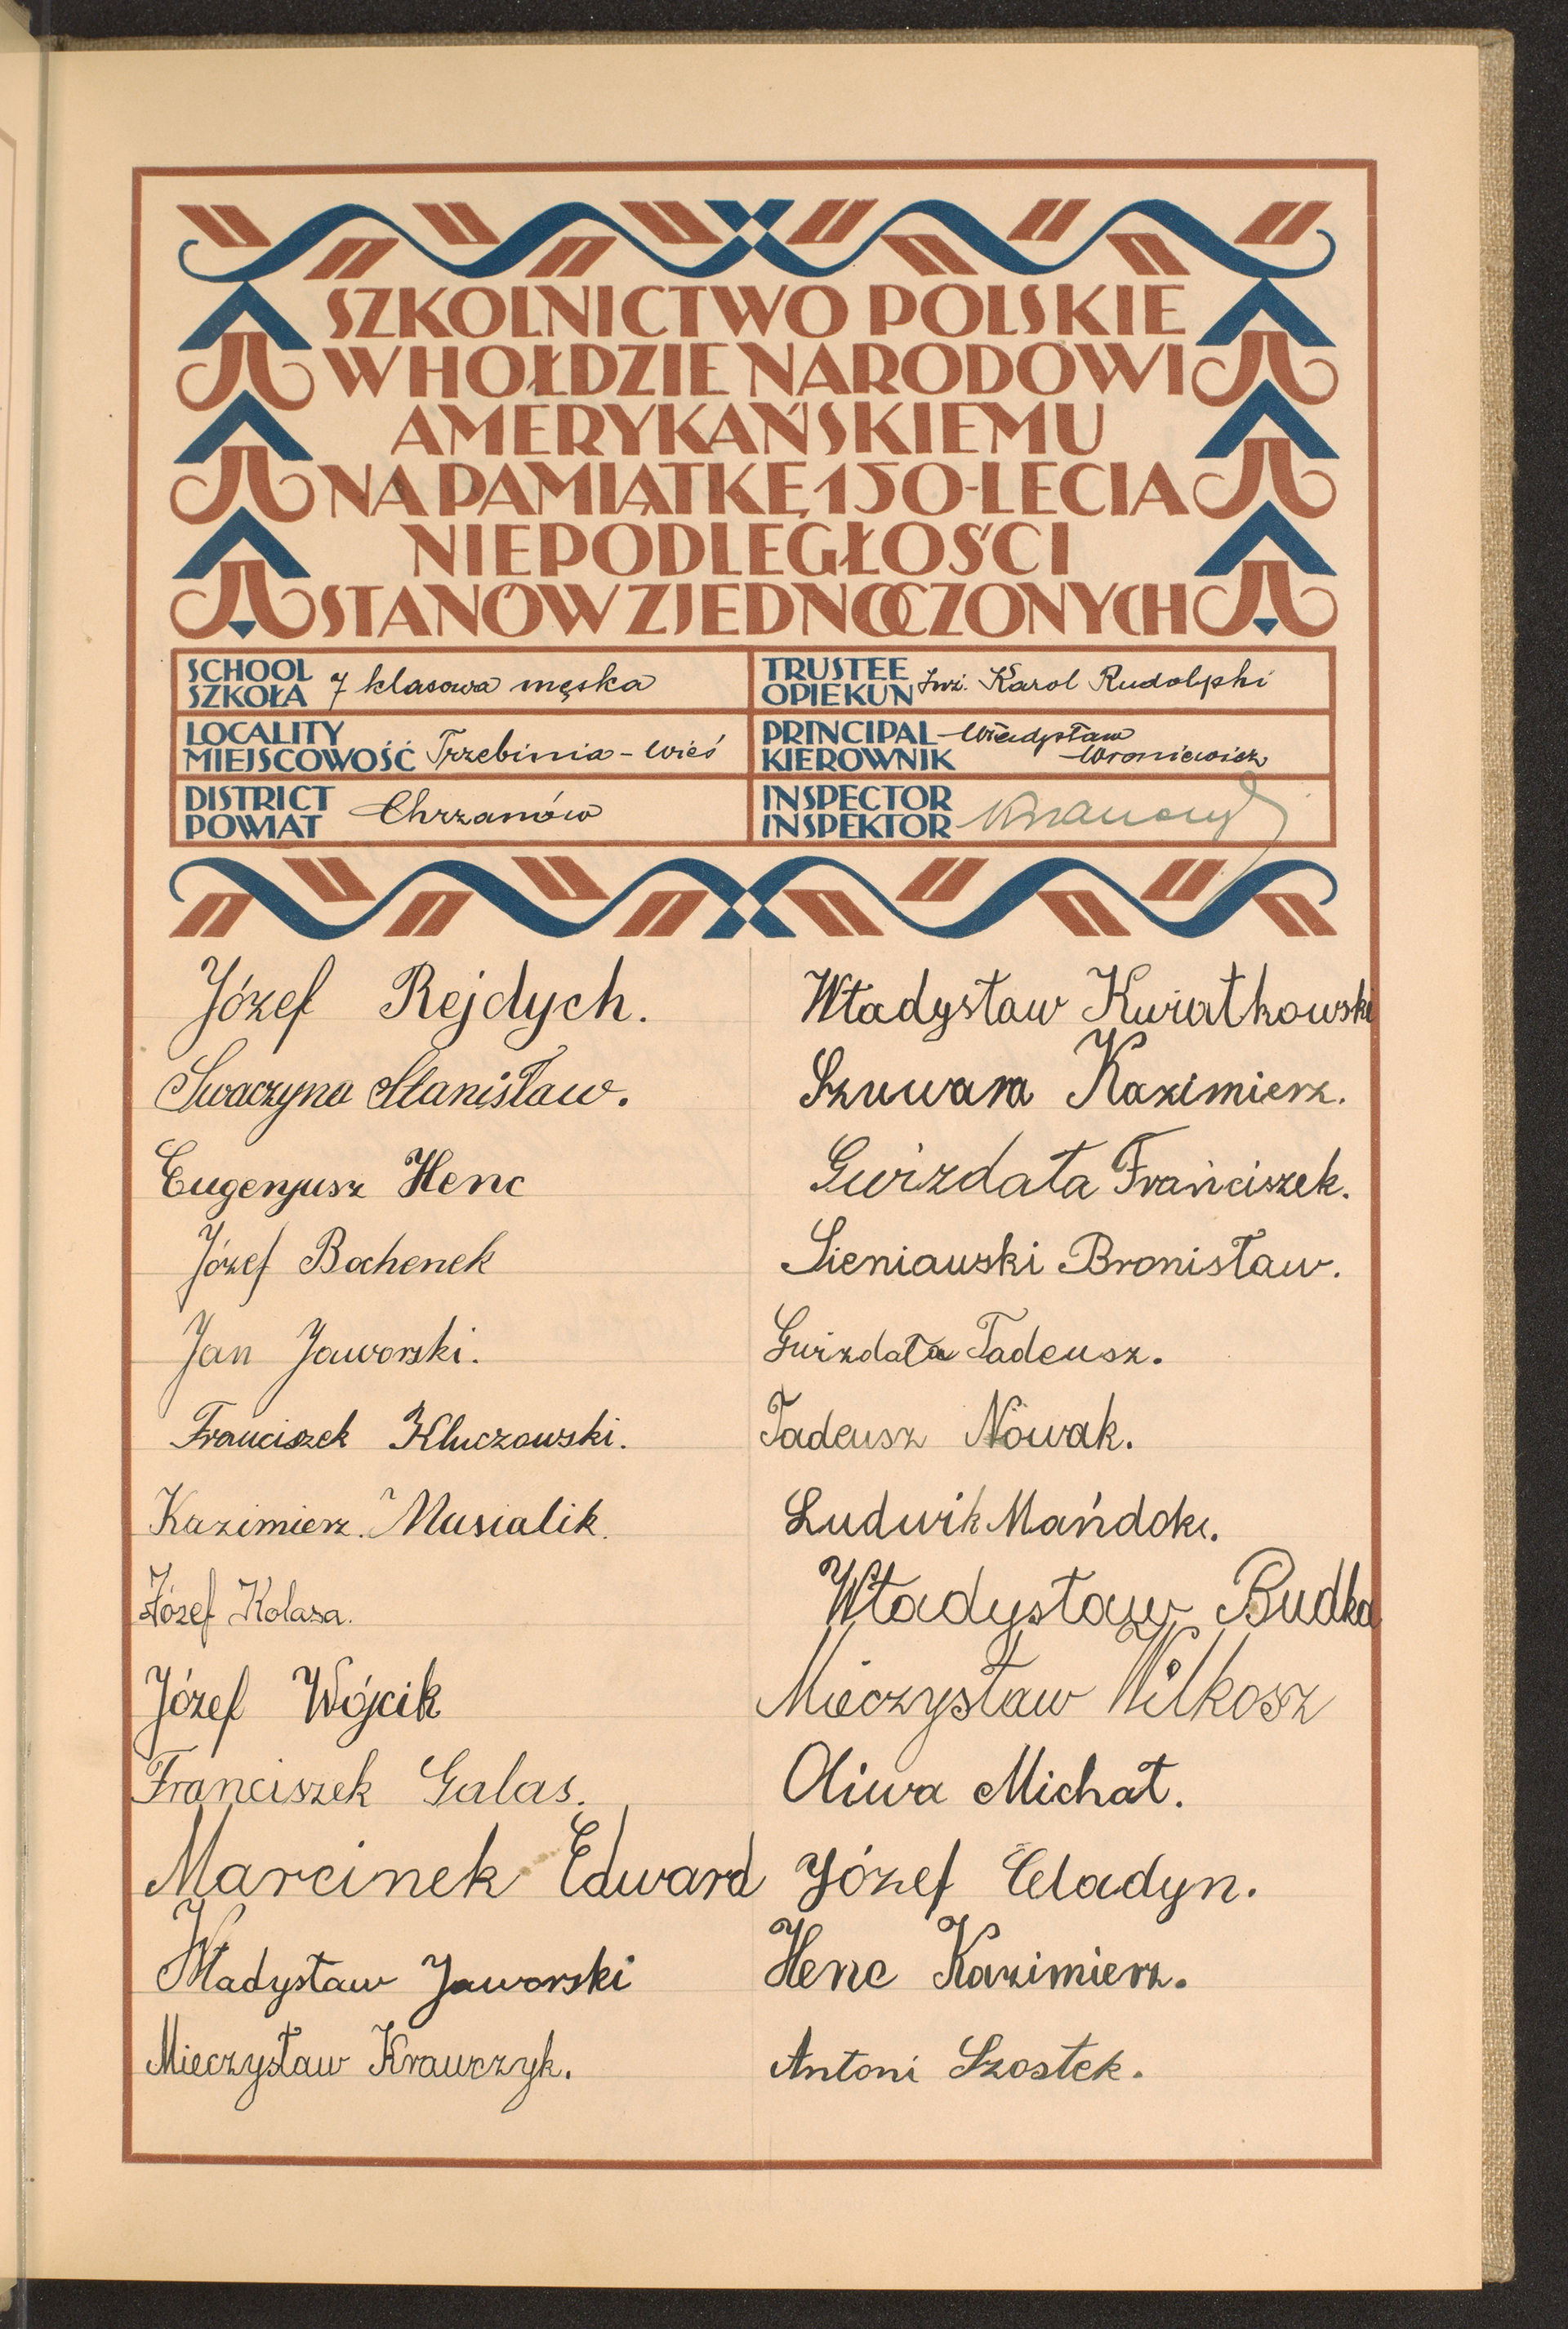 SZKOLNICTWO POLSKIE
W HOŁDZIE NARODOWI
AMERYKAŃSKIEMU
NA PAMIĄTKĘ 150-LECIA
NIEPODLEGŁOŚCI
STANÓW ZJEDNOCZONYCH
SCHOOL
SZKOŁA 7 klasowa męska
TRUSTEE
OPIEKUN Inż. Karol Rudolphi
LOCALITY
MIEJSCOWOŚĆ Trzebinia - wieś
PRINCIPAL Władysław
KIEROWNIK Woroniewicz
DISTRICT
POWIAT Chrzanów
INSPECTOR
INSPEKTOR
Józef Rejdych.
Swaczyna Stanisław.
Eugenjusz Henc
Józef Bochenek
Jan Jaworski.
Franciszek Kluczowski.
Kazimierz. Musialik.
Józef Kolasa.
Józef Wójcik
Franciszek Galas.
Marcinek Edward
Władysław Jaworski
Mieczysław Krawczyk.
Władysław Kwiatkowski
Szuwara Kazimierz.
Gwizdała Franciszek.
Sieniawski Bronisław.
Gwizdała Tadeusz.
Tadeusz Nowak.
Ludwik Mańdok.
Władysław Budka
Mieczysław Wilkosz
Oliwa Michał.
Józef Celadyn.
Henc Kazimierz.
Antoni Szostek.